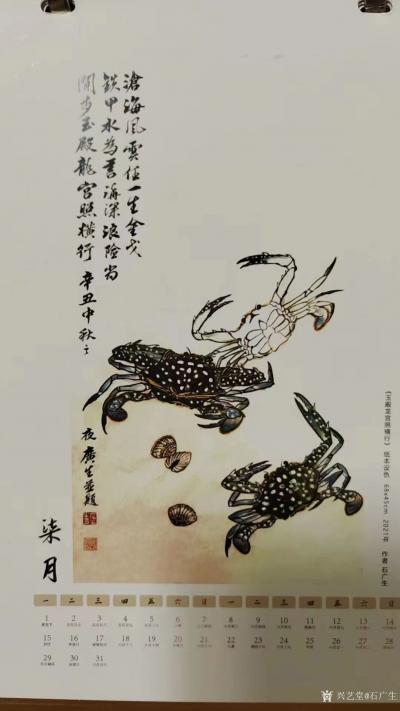 滄海風雲任一生金戈
铁甲水為营海深浪险尚
閒步玉殿龍宫照横行 辛丑中秋之
夜廣生並題
《玉殿龙宫照横行》 纸本设色 68x45cm 2021年 作者 石广生
柒月
一 二 三 四 五 六 日 一 二 三 四 五 六 日
1 2 3 4 5 6 7 8 9 10 11 12 13 14
建党节
15 16 17 18 19 20 21 22 23 24 25 26 27 28
29 30 31
兴艺堂@石广生